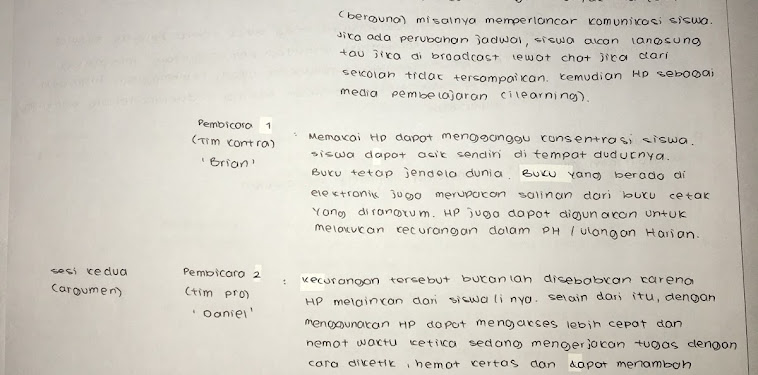 (berguna) misalnya memperlancar komunikasi siswa.
Jika ada perubahan jadwal, siswa akan langsung
tau jika di broadcast lewat chat jika dari
sekolah tidak tersampaikan. Kemudian HP sebagai
media pembelajaran (ilearning).
Pembicara 1
(Tim kontra)
'Brian'
: Memakai HP dapat mengganggu konsentrasi siswa.
siswa dapat asik sendiri di tempat duduknya.
Buku tetap jendela dunia. Buku yang berada di
elektronik juga merupakan salinan dari buku cetak
yang dirangkum. HP juga dapat digunakan untuk
melakukan kecurangan dalam PH / ulangan Harian.
sesi kedua
(argumen)
Pembicara 2
(tim pro)
'Daniel'
: kecurangan tersebut bukanlah disebabkan karena
HP melainkan dari siswa/i nya. selain dari itu, dengan
menggunakan HP dapat mengakses lebih cepat dan
hemat waktu ketika sedang mengerjakan tugas dengan
cara diketik, hemat kertas dan dapat menambah